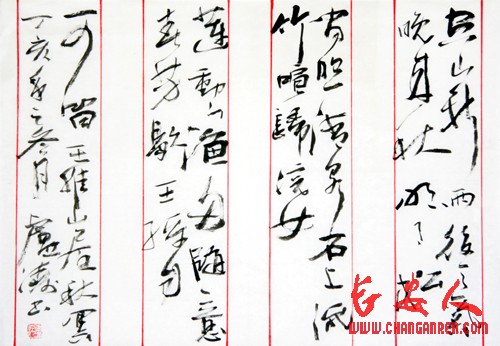 空山新雨後天氣
晚來秋明月松
間照清泉石上流
竹喧歸浣女
蓮動下漁舟隨意
春芳歇王孫自
可留王維山居秋暝
丁亥年之月盧濤書
长安人
WWW.CHANGANREN.COM